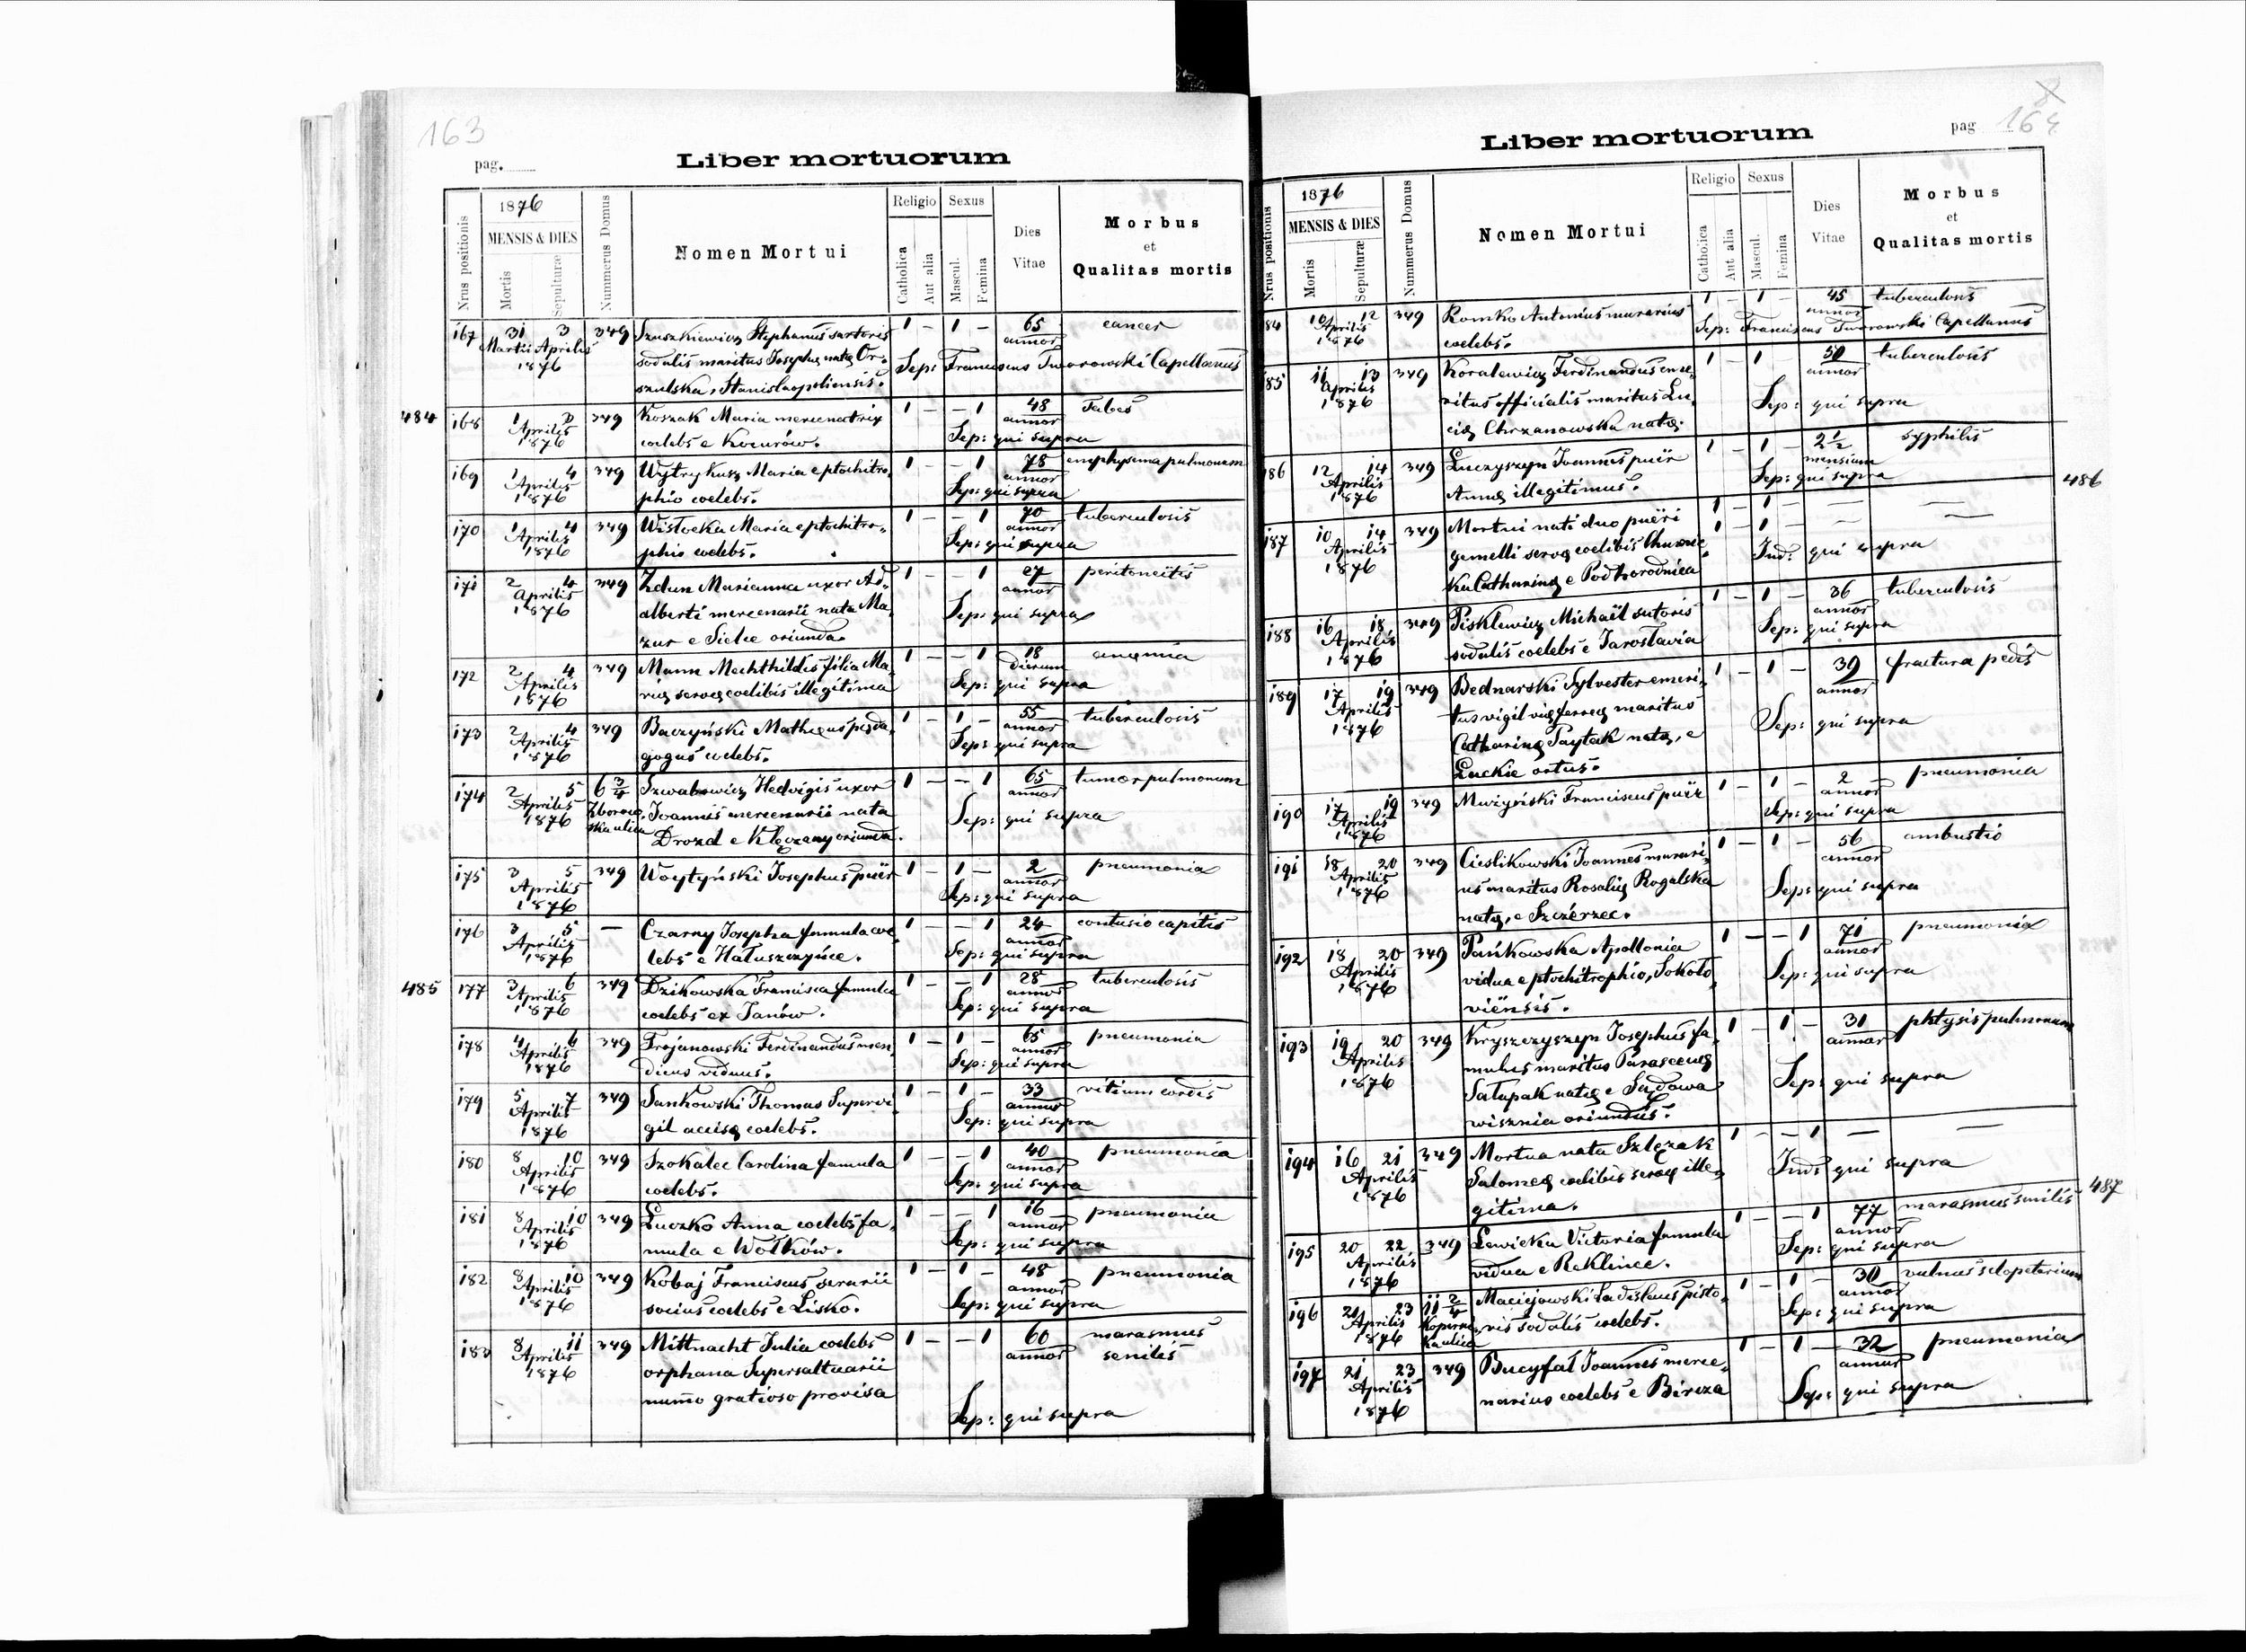 163
pag.
Liber mortuorum
Nrus positionis
1876
MENSIS & DIES
Mortis
Sepulturæ
Nummerus Domus
Nomen Mortui
Religio
Catholica
Aut alia
Sexus
Mascul.
Femina
Dies
Vitae
Morbus
et
Qualitas mortis
167 31 3 349 Szuszkiewicz Stephanus sartoris 1 – 1 – 65 cancer
Martii Aprilis sodalis maritus Josephæ natæ Or- annor
1876 szulska, Stanislaopoliensis. Sep: Franciscus Tworowski Capellanus
484
168 1 3 349 Koszak Maria mercenatrix 1 – – 1 48 Tabes
Aprilis coelebs e Kocurów. annor
1876 Sep: qui supra
169 1 4 349 Wytrykusz Maria e ptochitro- 1 – – 1 78 emphysema pulmonum
Aprilis phio coelebs. annor
1876 Sep: qui supra
170 1 4 349 Wisłocka Maria e ptochitro- 1 – – 1 70 tuberculosis
Aprilis phio coelebs. annor
1876 Sep: qui supra
171 2 4 349 Zdun Marianna uxor Ad- 1 – – 1 27 peritoneitis
Aprilis alberti mercenarii nata Ma- annor
1876 zur e Sielce oriunda. Sep: qui supra
172 2 4 349 Mann Mechthildis filia Ma- 1 – – 1 18 anæmia
Aprilis riæ servæ coelibis illegitima dierum
1876 Sep: qui supra
173 2 4 349 Baczyński Mathæus pæda- 1 – 1 – 55 tuberculosis
Aprilis gogus coelebs. annor
1876 Sep: qui supra
174 2 5 6 3/4 Szwabowicz Hedvigis uxor 1 – – 1 65 tumor pulmonum
Aprilis Zborow- Joannis mercenarii nata annor
1876 ska ulica Drozd e Klęczany oriunda. Sep: qui supra
175 3 5 349 Woytyński Josephus puër 1 – 1 – 2 pneumonia
Aprilis annor
1876 Sep: qui supra
176 3 5 – Czarny Josepha famula coe- 1 – – 1 24 contusio capitis
Aprilis lebs e Hałuszczyńce. annor
1876 Sep: qui supra
485
177 3 6 349 Dzikowska Francisca famula 1 – – 1 28 tuberculosis
Aprilis coelebs ex Janów. annor
1876 Sep: qui supra
178 4 6 349 Trojanowski Ferdinandus men- 1 – 1 – 65 pneumonia
Aprilis dicus viduus. annor
1876 Sep: qui supra
179 5 7 349 Sankowski Thomas Supervi- 1 – 1 – 33 vitium cordis
Aprilis gil accisæ coelebs. annor
1876 Sep: qui supra
180 8 10 349 Szokalec Carolina famula 1 – – 1 40 pneumonia
Aprilis coelebs. annor
1876 Sep: qui supra
181 8 10 349 Łuczko Anna coelebs fa- 1 – – 1 16 pneumonia
Aprilis mula e Wołków. annor
1876 Sep: qui supra
182 8 10 349 Kobaj Franciscus serarii 1 – 1 – 48 pneumonia
Aprilis socius coelebs e Lisko. annor
1876 Sep: qui supra
183 8 11 349 Mittnacht Julia coelebs 1 – – 1 60 marasmus
Aprilis orphana Supersaltuarii annor senilis
1876 numo gratioso provisa
Sep: qui supra
Liber mortuorum
pag
164
Nrus positionis
1876
MENSIS & DIES
Mortis
Sepulturæ
Nummerus Domus
Nomen Mortui
Religio
Catholica
Aut alia
Sexus
Mascul.
Femina
Dies
Vitae
Morbus
et
Qualitas mortis
84 10 12 349 Romko Antonius murarius 1 – 1 – 45 tuberculosis
Aprilis coelebs. annor
1876 Sep: Franciscus Tworowski Capellanus
85 11 13 349 Koralewicz Ferdinandus eme- 1 – 1 – 50 tuberculosis
Aprilis ritus officialis maritus Lu- annor
1876 ciæ Chrzanowska natæ. Sep: qui supra
186 12 14 349 Łuczyszyn Joannes puër 1 – 1 – 2 1/2 syphilis
Aprilis Annæ illegitimus. mensium
1876 Sep: qui supra
486
187 10 14 349 Mortui nati duo puëri 1 – 1 – — —
Aprilis gemelli servæ coelibis 1 – 1 – — —
1876 Catharinæ e Podhorodnica Ind: qui supra
188 16 18 349 Pisklewicz Michaël sutoris 1 – 1 – 36 tuberculosis
Aprilis sodalis coelebs e Jaroslavia annor
1876 Sep: qui supra
189 17 19 349 Bednarski Sylvester emeri- 1 – 1 – 39 fractura pedis
Aprilis tus vigil viæ ferreæ maritus annor
1876 Catharinæ Paytak natæ, e Sep: qui supra
Łuckie ortus.
190 17 19 349 Mużyński Franciscus puër 1 – 1 – 2 pneumonia
Aprilis annor
1876 Sep: qui supra
191 18 20 349 Cieslikowski Joannes murari- 1 – 1 – 56 ambustio
Aprilis us maritus Rosaliæ Rogalska annor
1876 natæ, e Szczérzec. Sep: qui supra
192 18 20 349 Pańkowska Apollonia 1 – – 1 71 pneumonia
Aprilis vidua e ptochitrophio, Sokoło- annor
1876 viënsis. Sep: qui supra
193 19 20 349 Kryszczyszyn Josephus fa- 1 – 1 – 31 phtysis pulmonum
Aprilis mulus maritus Parasceuæ annor
1876 Sałapak natæ e Sądowa Sep: qui supra
wisznia oriundus.
194 16 21 349 Mortua nata Szlęzak 1 – – 1 — —
Aprilis Salomeæ coelibis servæ ille- Ind: qui supra
1876 gitima.
487
195 20 22 349 Lewicka Victoria famula 1 – – 1 77 marasmus senilis
Aprilis vidua e Reklince. annor
1876 Sep: qui supra
196 21 23 11 2/4 Maciejowski Ladislaus pisto- 1 – 1 – 30 vulnus sclopetarium
Aprilis Koperni- ris sodalis coelebs. annor
1876 ka ulica Sep: qui supra
197 21 23 349 Bucyfał Joannes merce- 1 – 1 – 32 pneumonia
Aprilis narius coelebs e Bircza annor
1876 Sep: qui supra